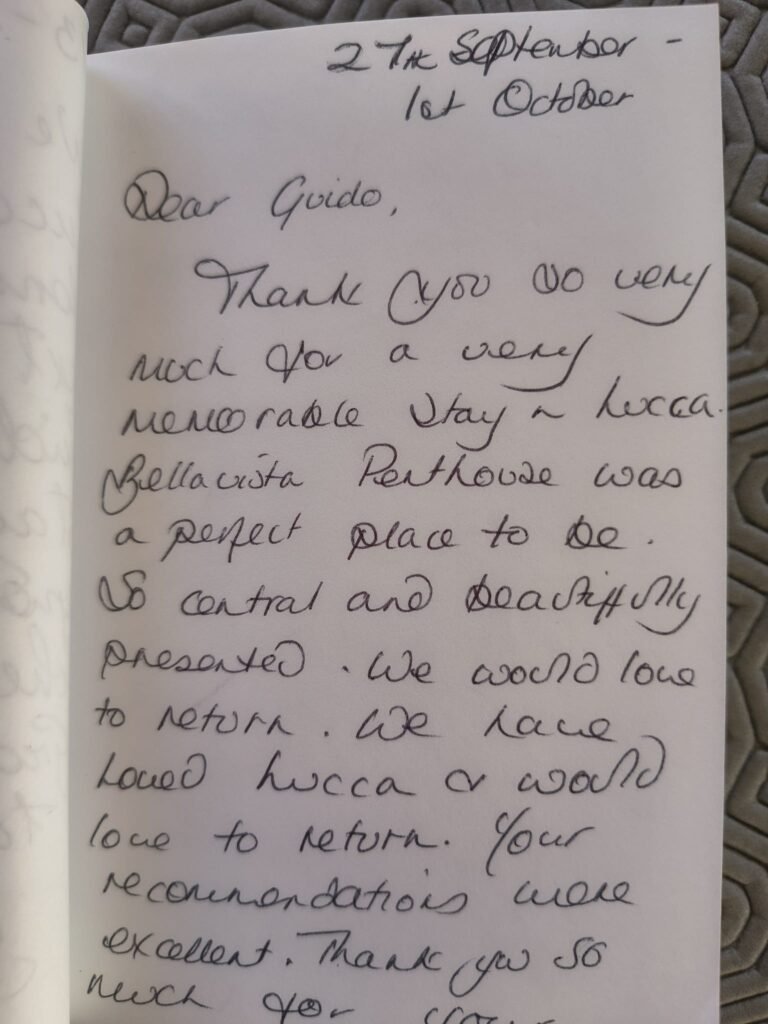 27th September -
1st October
Dear Guido,
Thank you so very
much for a very
memorable stay in Lucca.
Bellavista Penthouse was
a perfect place to be.
So central and beautifully
presented. We would love
to return. We have
loved Lucca & would
love to return. Your
recommendations were
excellent. Thank you so
much for